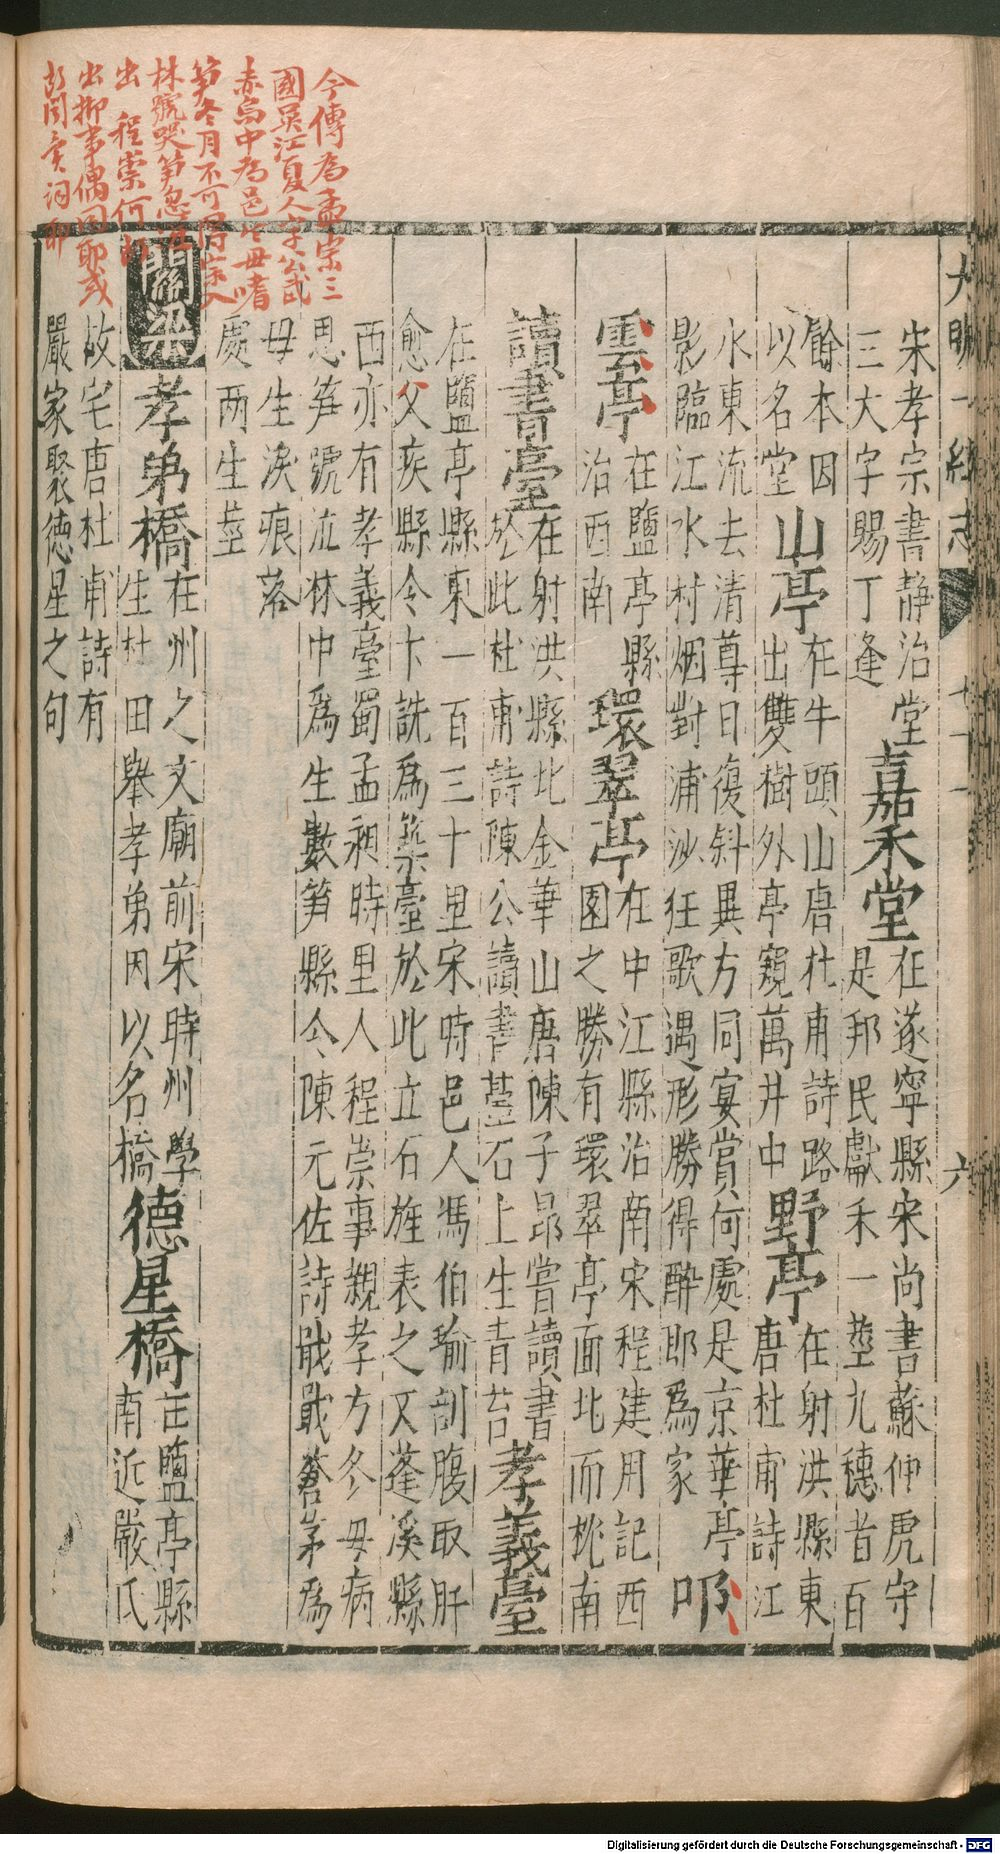 大明一統志
七十一
六
今傳為孟宗三
國吳江夏人字公武
赤烏中為邑令母嗜
笋冬月不可得宗入
林號哭笋忽迸
出 程崇何
出抑事偶同耶或
宋孝宗書静治堂
三大字賜丁逢
嘉禾堂
在遂寧縣宋尚書蘇仲虎守
是邦民獻禾一莖九穗者百
餘本因
以名堂
山亭
在牛頭山唐杜甫詩路
出雙樹外亭窺萬井中
野亭
在射洪縣東
唐杜甫詩江
水東流去清尊日復斜異方同宴賞何處是京華亭
影臨江水村烟對浦沙狂歌遇形勝得醉即為家
吅
雲亭
在鹽亭縣
治西南
環翠亭
在中江縣治南宋程建用記西
園之勝有環翠亭面北而桃南
讀書臺
在射洪縣北金華山唐陳子昂嘗讀書
於此杜甫詩陳公讀書臺石上生青苔
孝義臺
在鹽亭縣東一百三十里宋時邑人馮伯瑜剖腹取肝
愈父疾縣令卞詵為築臺於此立石旌表之又蓬溪縣
西亦有孝義臺蜀孟昶時里人程崇事親孝方冬母病
思笋號泣林中為生數笋縣令陳元佐詩戢戢蒼茅為
母生淚痕落
處两生莖
關梁
孝弟橋
在州之文廟前宋時州學
生杜田舉孝弟因以名橋
德星橋
在鹽亭縣
南近嚴氏
故宅唐杜甫詩有
嚴家聚德星之句
Digitalisierung gefördert durch die Deutsche Forschungsgemeinschaft - DFG